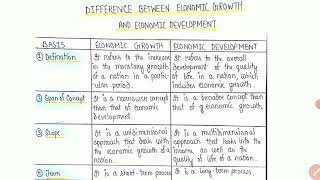 DIFFERENCE BETWEEN ECONOMIC GROWTH
AND ECONOMIC DEVELOPMENT
BASIS
ECONOMIC GROWTH
ECONOMIC DEVELOPMENT
① Definition
It refers to the increase
in the monetary growth
of a nation in a
particular period.
It refers to the overall
development of the quality
of life in a nation, which
includes economic growth.
② Span of Concept
It is a narrower concept
than that of economic
development.
It is a broader concept than
that of economic growth.
③ Scope
It is a unidimensional
approach that deals with
the economic growth of a
nation.
It is a multidimensional
approach that looks into the
income as well as the
quality of life of a nation.
④ Term
It is a short-term process
It is a long-term process.